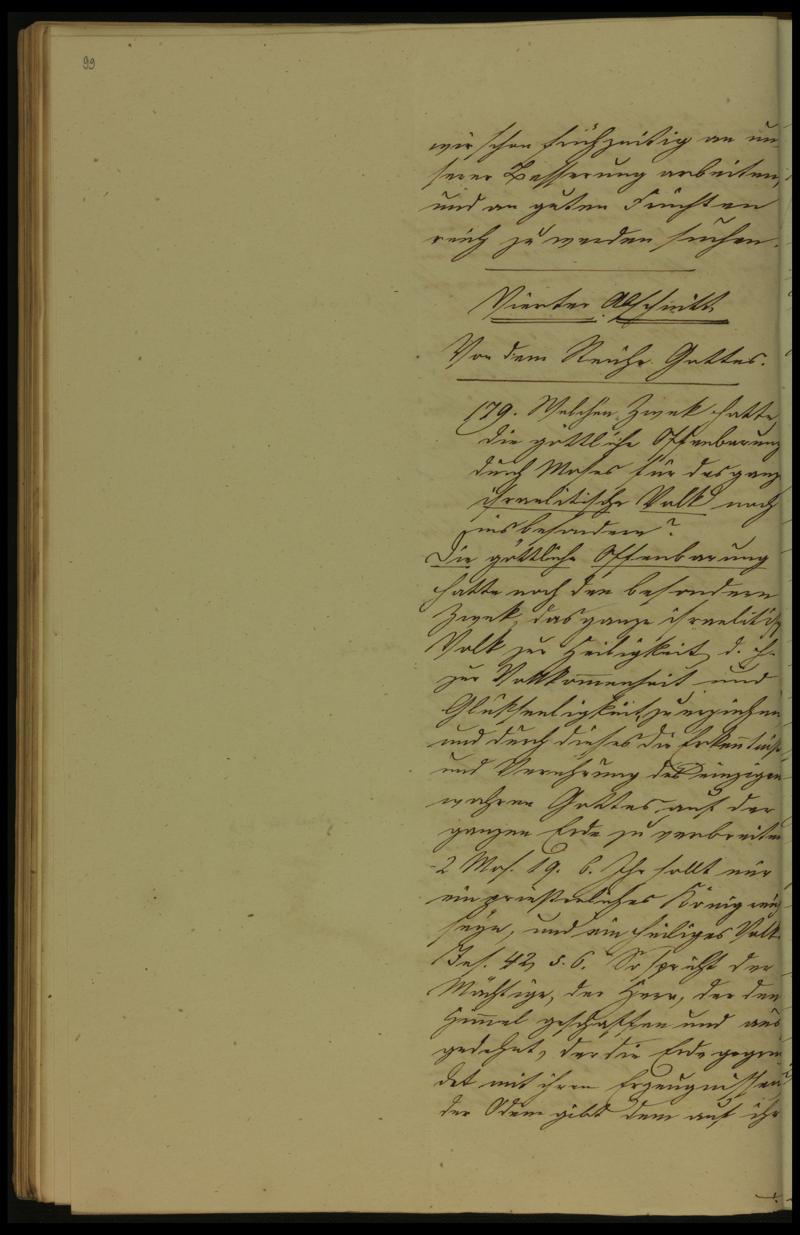 99
wir schon frühzeitig an un
serer Besserung arbeiten,
und an guten Früchten
reich zu werden suchen.
Vierter Abschnitt
Von dem Reiche Gottes.
179. Welchen Zwek hatte
die göttliche Offenbarung
durch Moses für das ganz
israelitische Volk noch
insbesondere?
Die göttliche Offenbarung
hatte noch den besondern
Zwek, das ganze israelitisch
Volk zur Heiligkeit, d. h.
zur Vollkommenheit und
Glükseeligkeit, zu erziehen,
und durch dieses die Erkentniß
und Verehrung des einzigen
wahren Gottes auf der
ganzen Erde zu verbreiten
2 Mos. 19. 6. Ihr sollt mir
ein priesterliches Königreich
seyn, und ein heiliges Volk.
Jes. 42, 5. 6. So spricht der
Mächtige, der Herr, der den
Himel geschaffen und aus
gedehnt, der die Erde gegrün
det mit ihren Erzeugnissen
der Odem gibt dem auf ihr